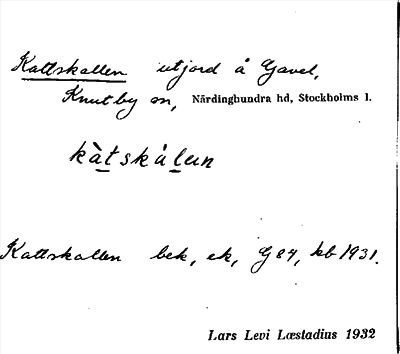 Kattskallen utjord å Gavel,
Knutby sn, Närdinghundra hd, Stockholms l.
kàtskálen
Kattskallen bek, ek, G 84, kb 1931.
Lars Levi Læstadius 1932